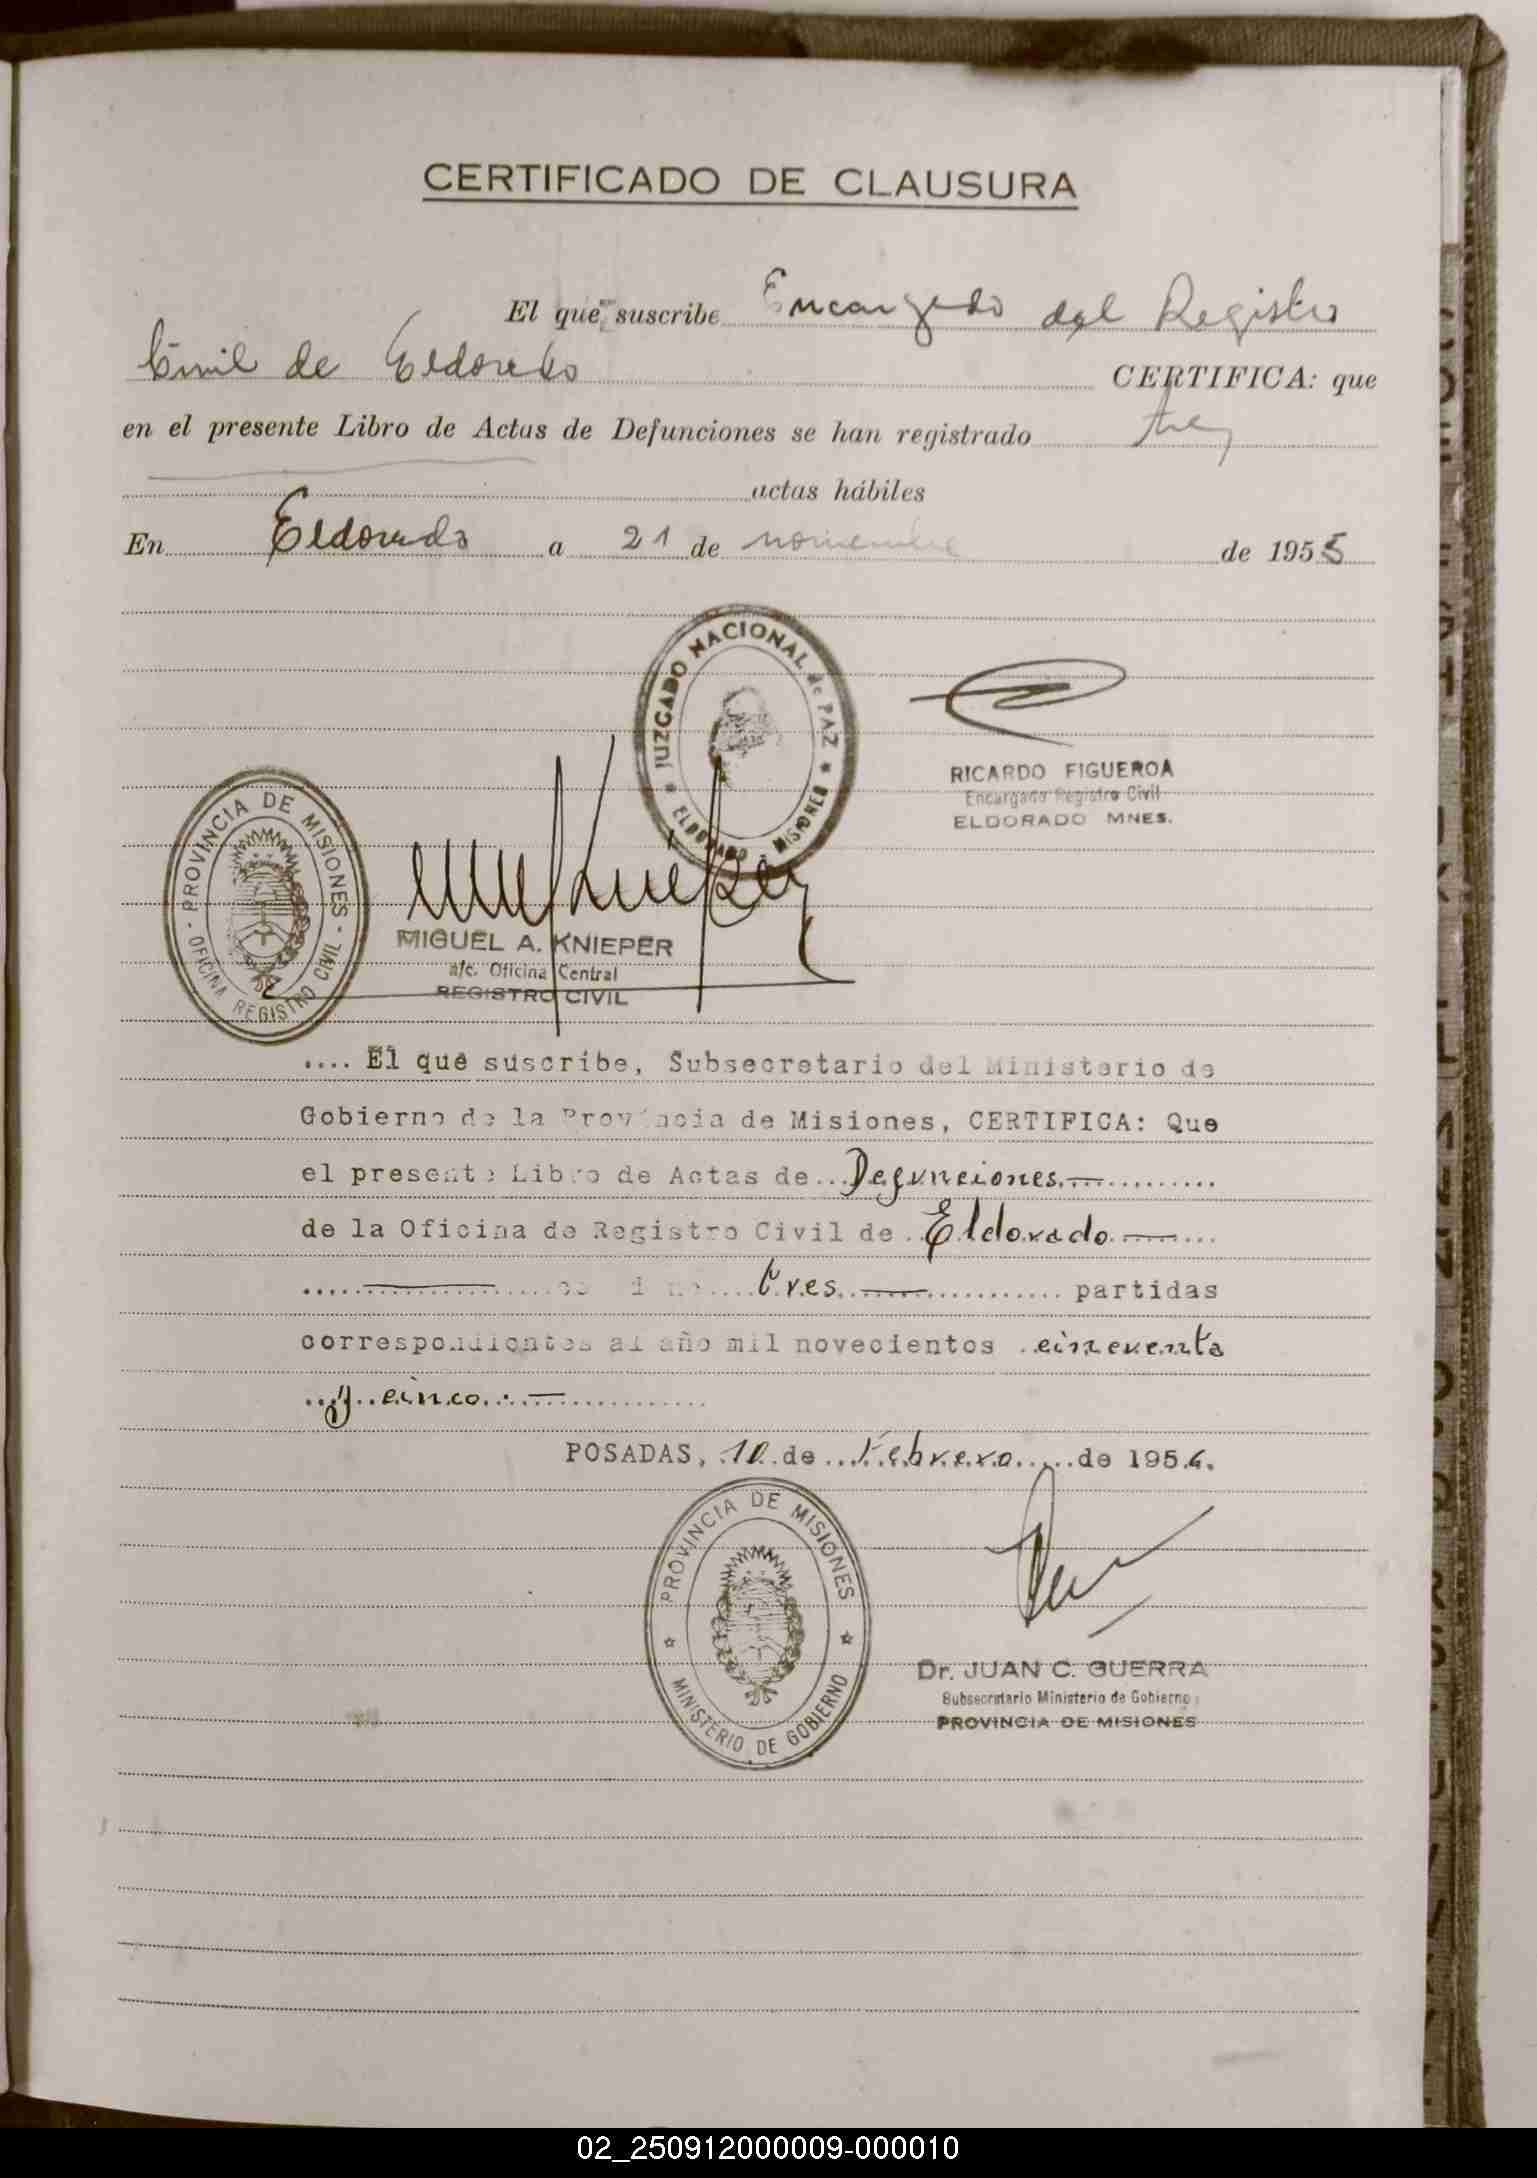 CERTIFICADO DE CLAUSURA
El que suscribe Encargado del Registro
Civil de Eldorado CERTIFICA: que
en el presente Libro de Actas de Defunciones se han registrado tres
actas hábiles
En Eldorado a 21 de noviembre de 1955
JUZGADO NACIONAL de PAZ
ELDORADO MISIONES
RICARDO FIGUEROA
Encargado Registro Civil
ELDORADO MNES.
PROVINCIA DE MISIONES
OFICINA REGISTRO CIVIL
MIGUEL A. KNIEPER
a/c. Oficina Central
REGISTRO CIVIL
.... El que suscribe, Subsecretario del Ministerio de
Gobierno de la Provincia de Misiones, CERTIFICA: Que
el presente Libro de Actas de...Defunciones............
de la Oficina de Registro Civil de ..Eldorado.......
tres partidas
correspondientes al año mil novecientos .cincuenta
...y..cinco...
POSADAS, .10.de...Febrero.....de 1956.
PROVINCIA DE MISIONES
MINISTERIO DE GOBIERNO
Dr. JUAN C. GUERRA
Subsecretario Ministerio de Gobierno
PROVINCIA DE MISIONES
02_250912000009-000010